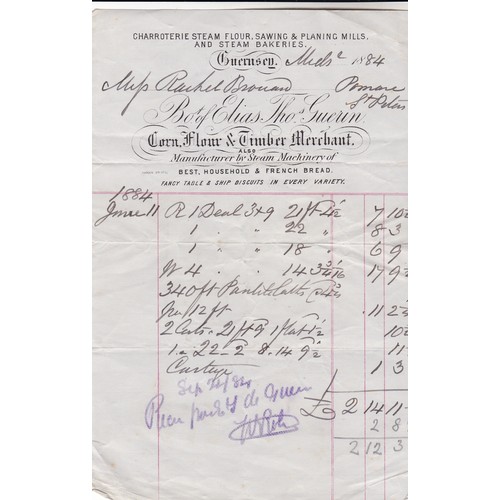 CHARROTERIE STEAM FLOUR, SAWING & PLANING MILLS,
AND STEAM BAKERIES.
Guernsey, Mids.r 1884
Miss Rachel Brouard
St Peters
Bot. of Elias Thos. Guerin
Corn, Flour & Timber Merchant.
ALSO
Manufacturer by Steam Machinery of
BEST, HOUSEHOLD & FRENCH BREAD.
FANCY TABLE & SHIP BISCUITS IN EVERY VARIETY.
1884
June 11 R 1 Deal 3 x 9 21 ft 4½ 7 10½
1 " " 22 " 8 3
1 . " 18 " 6 9
W 4 . . 14 17 9
340 ft 11
12 ft
2 Cuts 21 ft 9 1 flat 1½ 10½
1 . 22 . 2 8 . 14 9½ 11
Cartage 1 3
£ 2 14 11
2 8
2 12 3
Sep 84